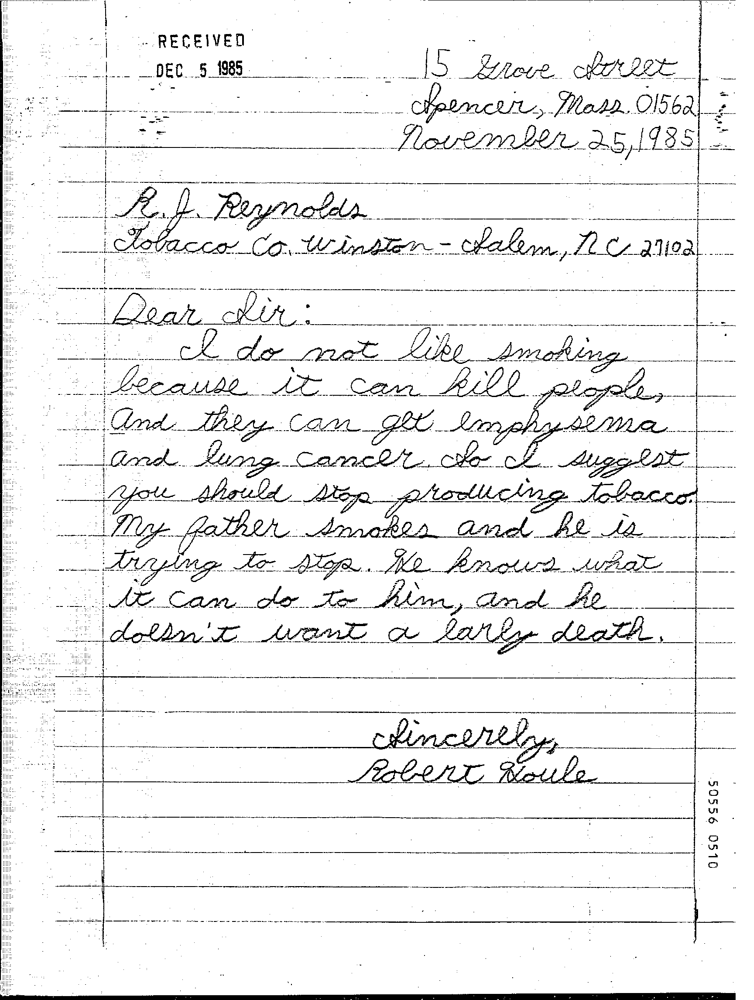 RECEIVED
DEC 5 1985
15 Grove Street
Spencer, Mass. 01562
November 25, 1985
R. J. Reynolds
Tobacco Co. Winston - Salem, NC 27102
Dear Sir:
I do not like smoking
because it can kill people,
and they can get emphysema
and lung cancer. So I suggest
you should stop producing tobacco.
My father smokes and he is
trying to stop. He knows what
it can do to him, and he
doesn't want a early death.
Sincerely,
Robert Houle
50556 0510